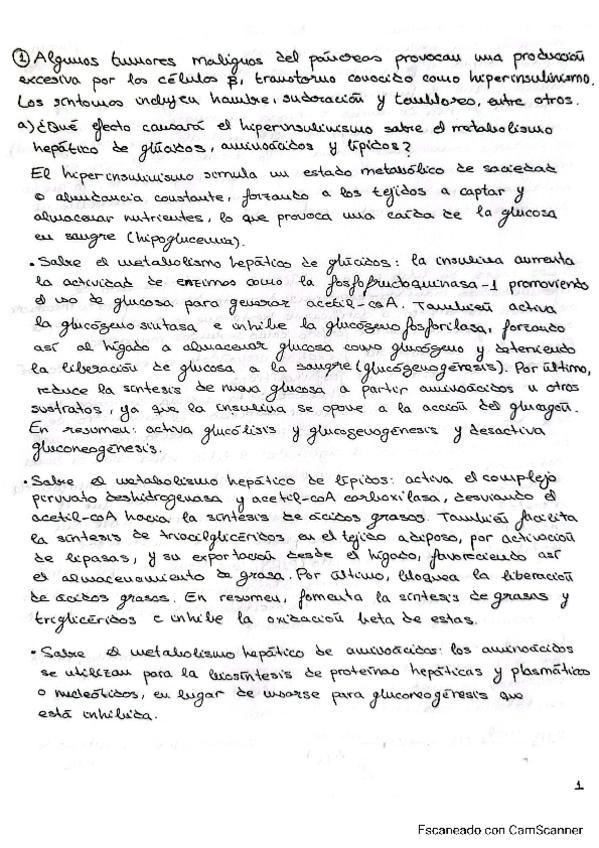 ① Algunos tumores malignos del páncreas provocan una producción
excesiva por los células β, transtorno conocido como hiperinsulinismo.
Los síntomas incluyen hambre, sudoración y temblores, entre otros.
a) ¿Qué efecto causará el hiperinsulinismo sobre el metabolismo
hepático de glúcidos, aminoácidos y lípidos?
El hiperinsulinismo simula un estado metabólico de saciedad
o abundancia constante, forzando a los tejidos a captar y
almacenar nutrientes, lo que provoca una caída de la glucosa
en sangre (hipoglucemia).
• Sobre el metabolismo hepático de glúcidos: la insulina aumenta
la actividad de enzimas como la fosfofructoquinasa-1 promoviendo
el uso de glucosa para generar acetil-coA. También activa
la glucógeno sintasa e inhibe la glucógeno fosforilasa, forzando
así al hígado a almacenar glucosa como glucógeno y deteniendo
la liberación de glucosa a la sangre (glucógenogénesis). Por último,
reduce la síntesis de nueva glucosa a partir aminoácidos u otros
sustratos, ya que la insulina se opone a la acción del glucagón.
En resumen: activa glucólisis y glucogenogénesis y desactiva
gluconeogénesis.
• Sobre el metabolismo hepático de lípidos: activa el complejo
piruvato deshidrogenasa y acetil-coA carboxilasa, desviando el
acetil-coA hacia la síntesis de ácidos grasos. También facilita
la síntesis de triacilglicéridos en el tejido adiposo, por activación
de lipasas, y su exportación desde el hígado, favoreciendo así
el almacenamiento de grasa. Por último, bloquea la liberación
de ácidos grasos. En resumen, fomenta la síntesis de grasas y
triglicéridos e inhibe la oxidación beta de estas.
• Sobre el metabolismo hepático de aminoácidos: los aminoácidos
se utilizan para la biosíntesis de proteínas hepáticas y plasmáticas
o nucleótidos, en lugar de usarse para gluconeogénesis que
está inhibida.
1
Escaneado con CamScanner